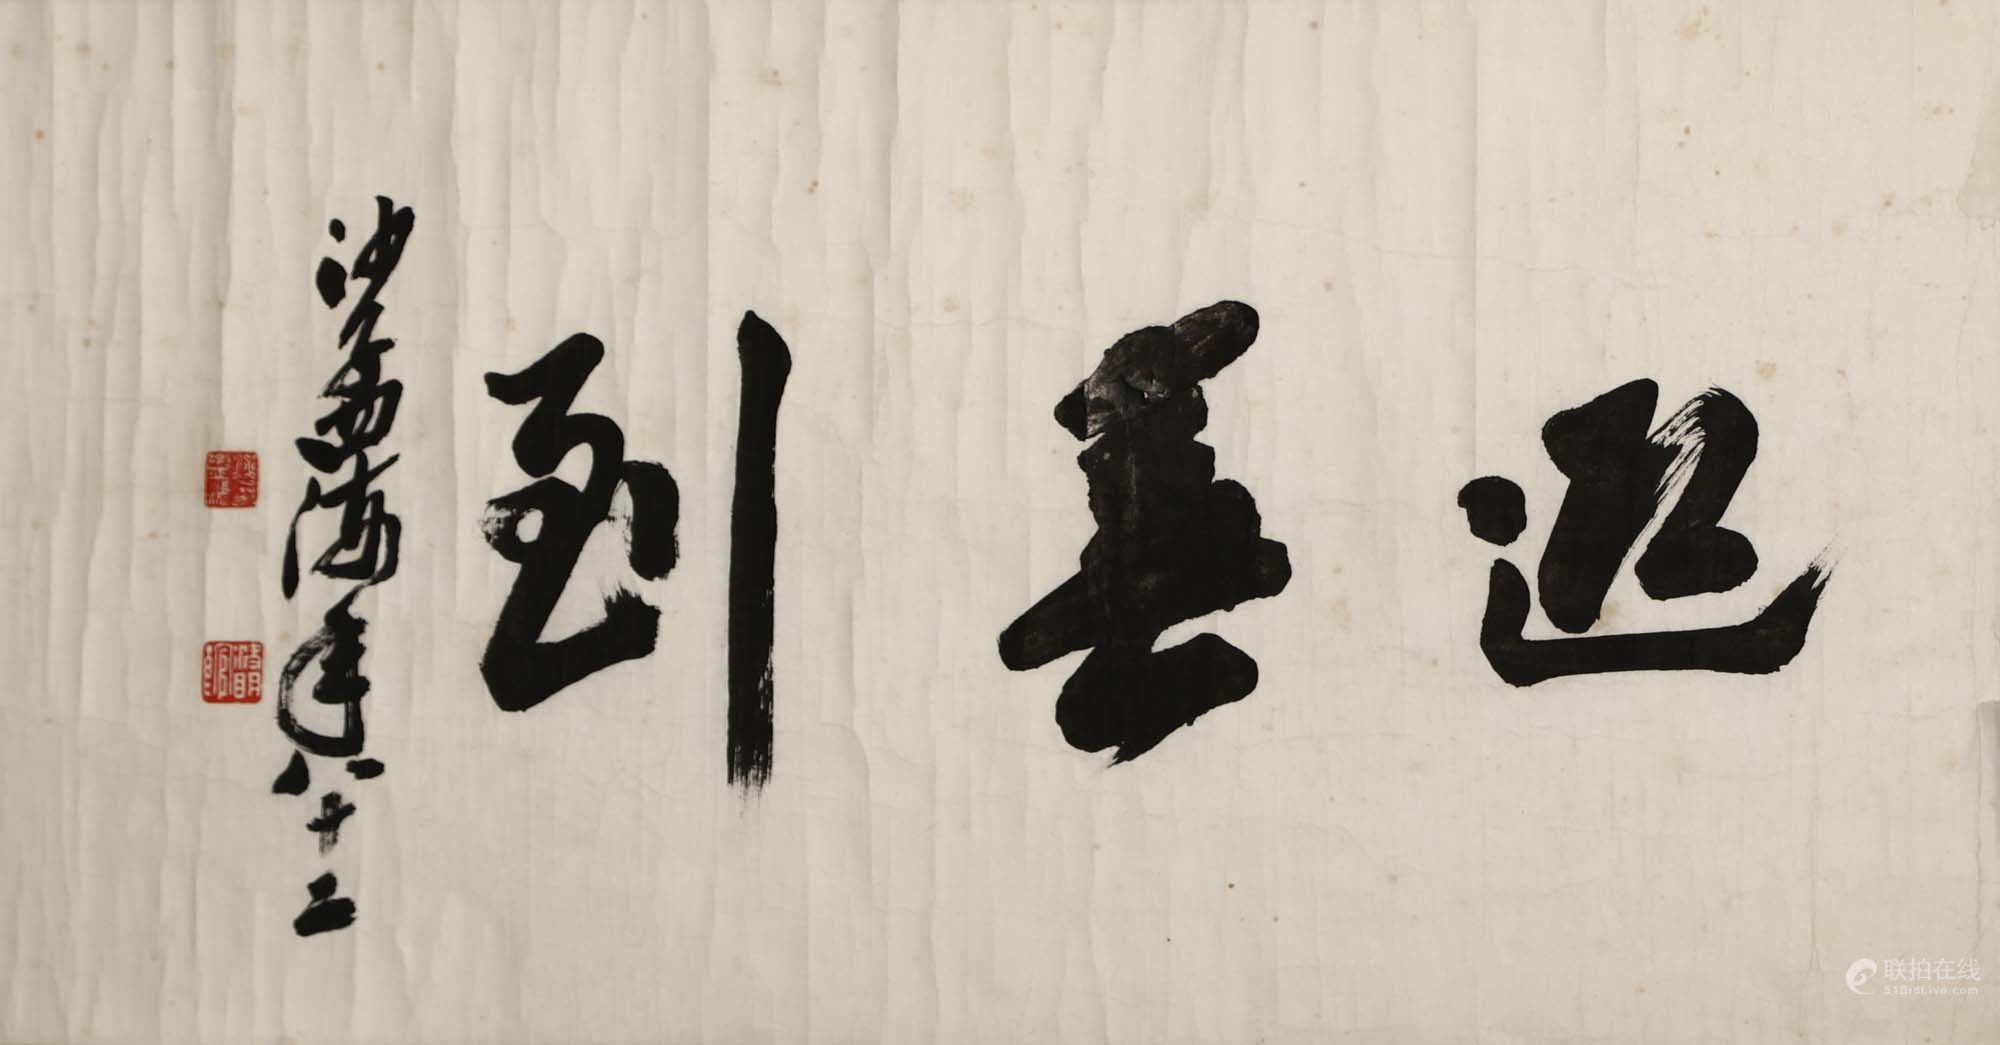 迎春到
沙孟海年八十二
联拍在线
51BidLive.com